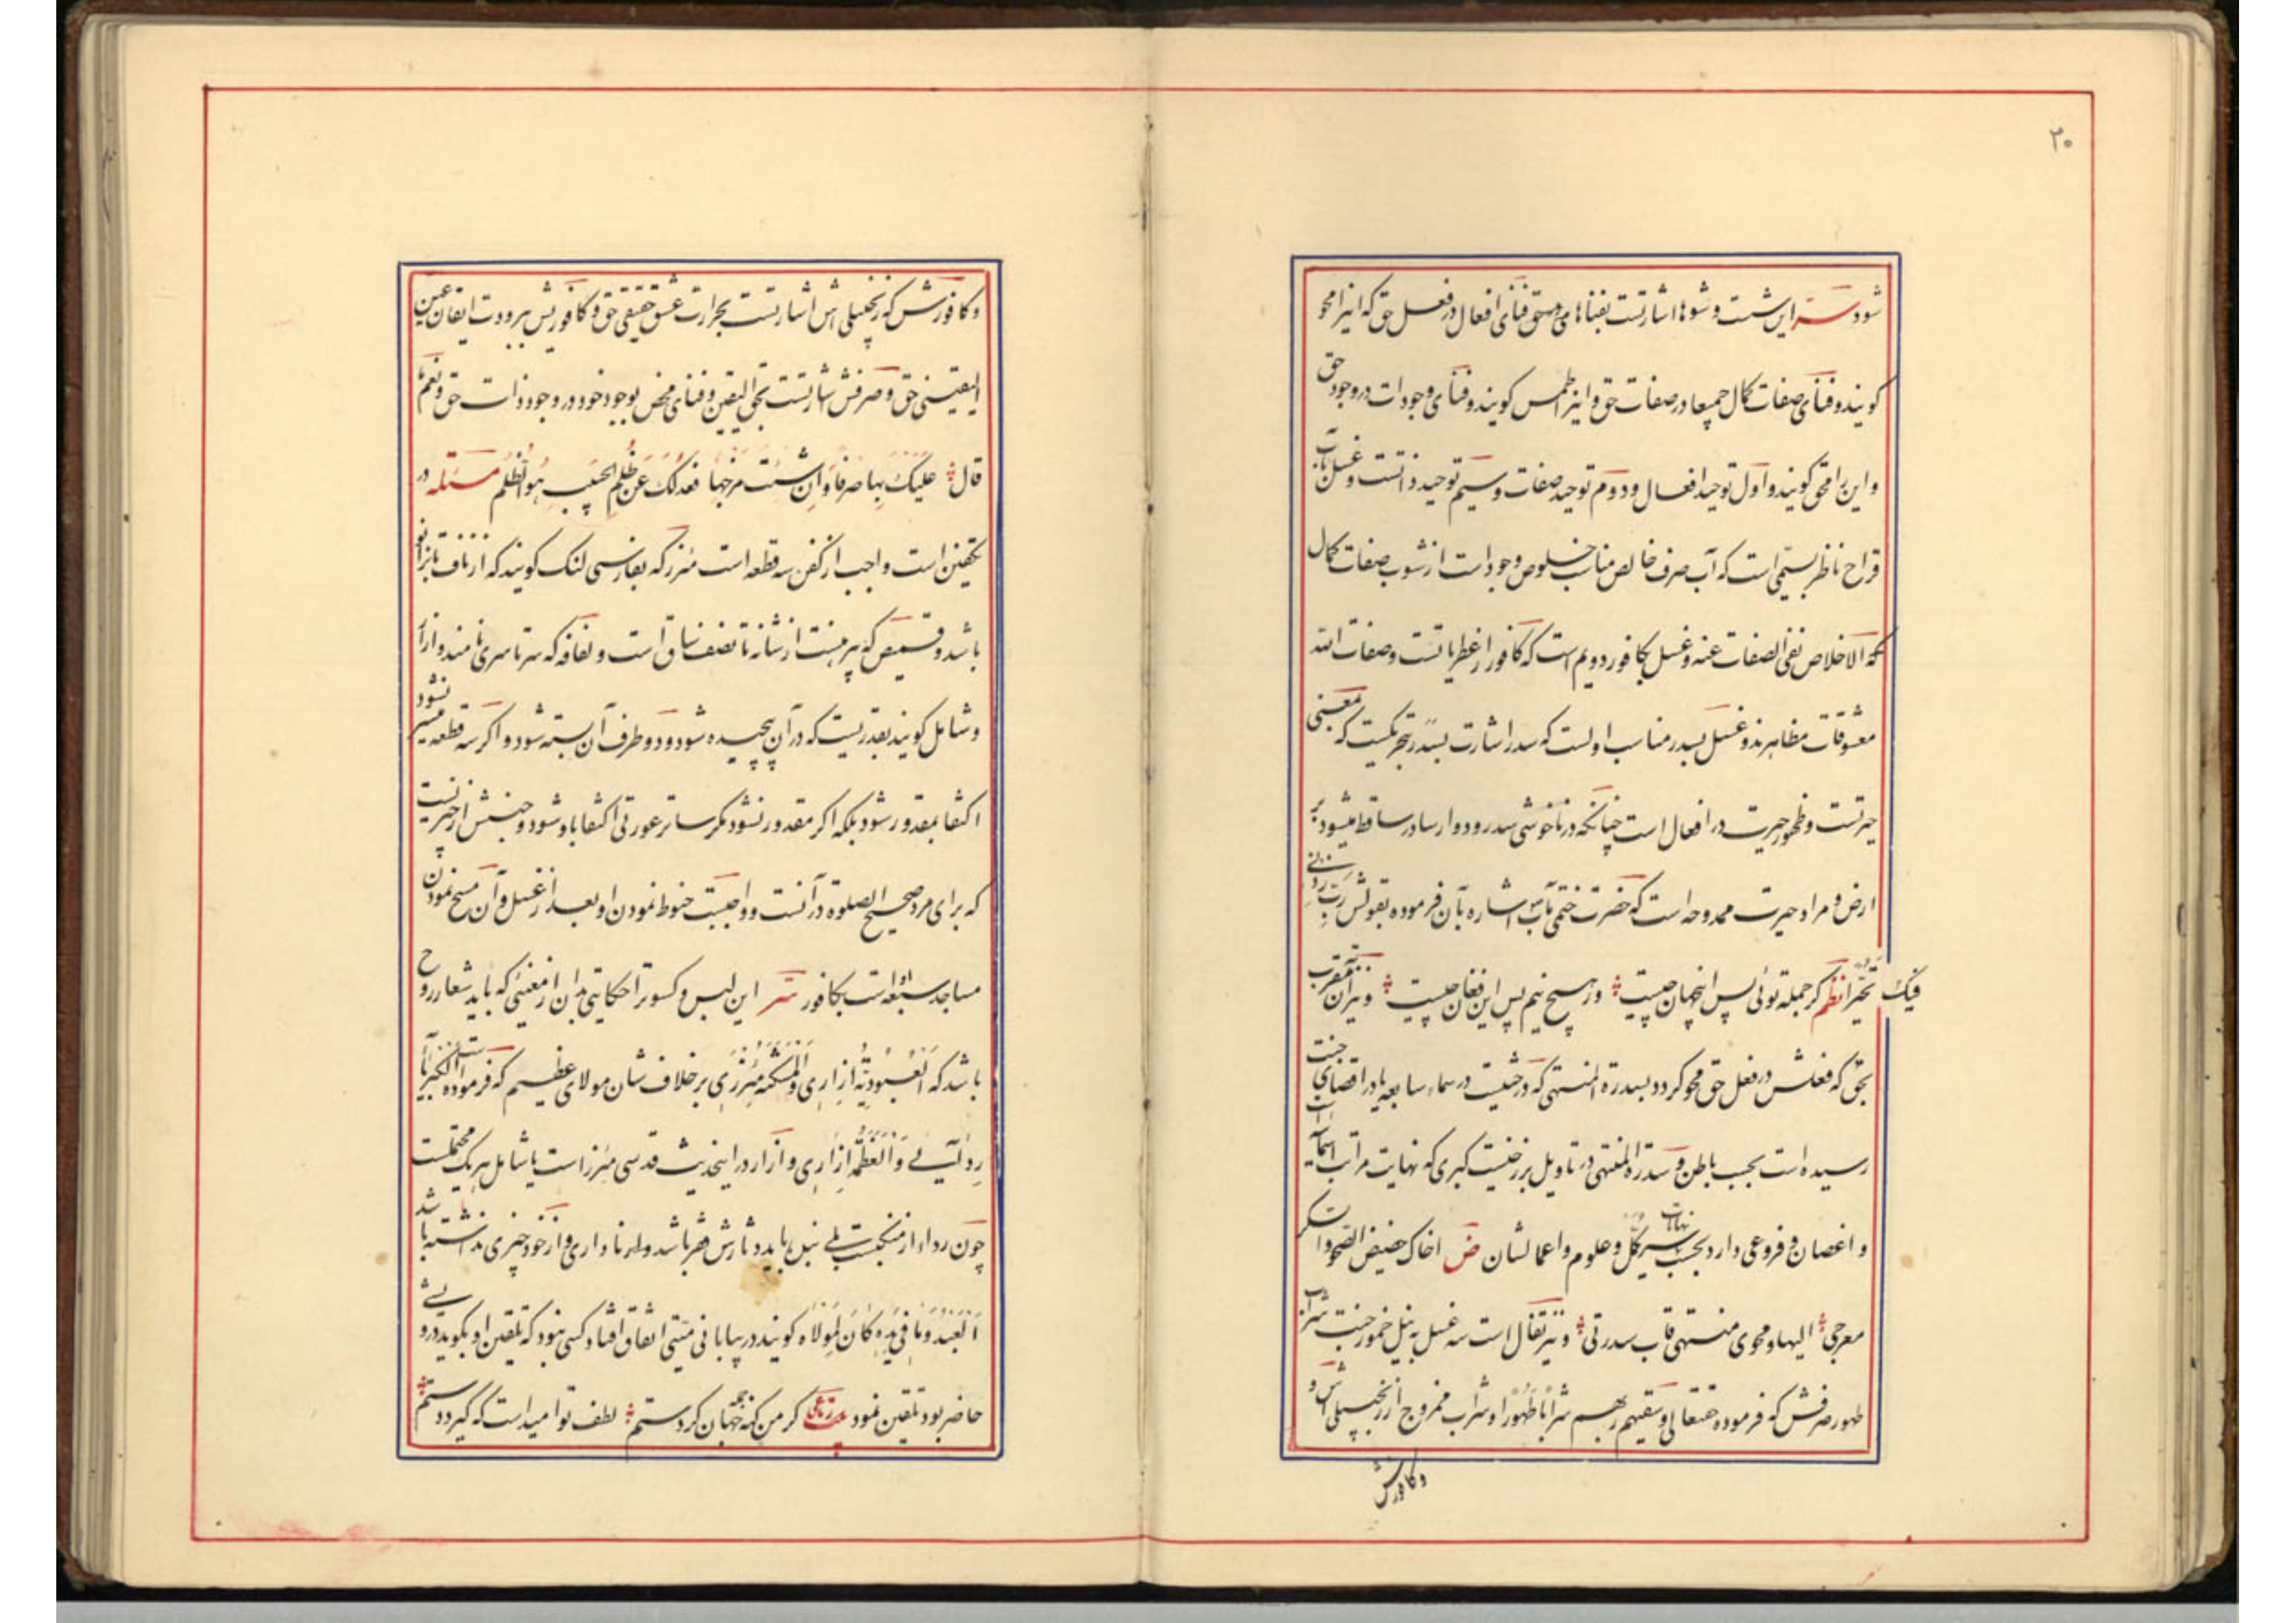 ۲۰
شود سرّ این شست و شوها اشارتست بفناهای مستحق فنای افعال در فعل حق که اینرا محو
کویند و فنای صفات کمال جمیعا در صفات حق و اینرا طمس کویند و فنای وجودات در وجود حق
و این را محق کویند و اول توحید افعال و دوم توحید صفات و سیم توحید ذاتست و غسل بآب
قراح ناظر بسیمی است که آب صرف خالص مناسب خلوص وجود است از شوب صفات کمال
که الاخلاص نفی الصفات عنه و غسل بکافور دویم است که کافور از عطریاتست و صفات الله
معشوقات مظاهرند و غسل بسدر مناسب اولست که سدر اشارت بسدر تحیریست که معنی
حیرتست و ظهور حیرت در افعال است چنانکه در ناخوشی سدر و دوار سادر ساقط میشود بر
ارض و مراد حیرت ممدوحه است که حضرت ختمی مآب اشاره بآن فرموده بقولش رب زدنی
فیک تحیّرا نظم کر جمله توئی پس اینجهان چیست ور هیچ نیم پس این فغان چیست و نیز آن مقرب
بحق که فعلش در فعل حق محو کردد بسدرة المنتهی که درختیست در سماء سابعه یا در اقصای جنت
رسیده است بحسب باطن و سدرة المنتهی در تاویل برزخیت کبری که نهایت مراتب اسمآء
و اغصان و فروعی دارد بحسب نهایات سیر کمّل و علوم و اعمالشان ض اخاک حضیض الصحو و السکر
معرجی الیها و محوی منتهی قاب سدرتی و نیز تفال است سه غسل به نیل خمور جنت شراب
طهور صرفش که فرموده حقتعالی و سقیهم ربهم شرابا طهورا و شراب ممزوج از زنجبیلی اش و
و کافورش
و کافورش که زنجبیلی اش اشارتست بحرارت عشق حقیقی حق و کافوریش ببرودت ایقان عین
الیقینی حق و صرفش اشارتست بحق الیقین و فنای محض بوجود خود در وجود ذات حق و نعم ما
قال علیک بها صرفا و ان شئت مزجها فعدلک عن ظلم الحبیب هو الظلم مسئله در
تکفین است واجب از کفن سه قطعه است مئزر که بفارسی لنک کویند که از ناف تا بزانو
باشد و قمیص که پیرهنست از شانه تا نصف ساق است و لفافه که سرتاسری نامند و ازار
و شامل کویند بقدریست که در آن پیچیده شود و دو طرف آن بسته شود و اکر سه قطعه میسر نشود
اکتفا بمقدور شود بلکه اکر مقدور نشود مکر ساتر عورتی اکتفا باو شود و جنسش از چیزیست
که برای مرد صحیح الصلوة در آنست و واجبست حنوط نمودن او بعد از غسل و آن مسح نمودن
مساجد سبعه او است بکافور سّر این لبس و کسوترا حکایتی بدان از معنئی که باید شعار روح
باشد که العبودیّة ازاری و المسکنة مئزری بر خلاف شان مولای عظیم که فرموده است الکبریآء
ردآئی و العظمة ازاری و ازار در اینحدیث قدسی مئزر است یا شامل هر یک محتملست
چون رداء از منکبست بلی نیل باید دثارش فقر باشد و او ناداری و از خود چیزی نداشته باشد
العبد و ما فی یده کان لمولاه کویند در بیابانی میتی اتفاق افتاد کسی نبود که تلقین او بکوید درویشی
حاضر بود تلقین نمود رباعی کر من کنه جمله جهان کردستم لطف تو امید است که کیرد دستم